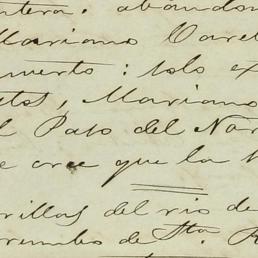 abandon
Mariano Vare
muerto: solo ex
tos, Mariano
l Paso del Nor
e cree que la
rillas del rio de
rembo de Sta. R